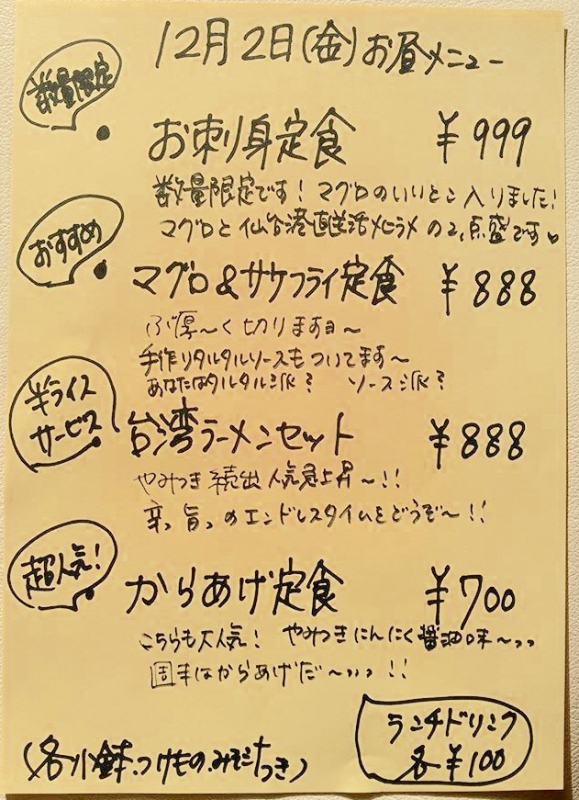 12月2日(金)お昼メニュー
数量限定
お刺身定食 ¥999
数量限定です!マグロのいいとこ入りました!
マグロと仙台港直送活〆ヒラメの2点盛です♥
おすすめ
マグロ&サケフライ定食 ¥888
ぶ厚〜く切りますヨ〜
手作りタルタルソースもついてます〜
あなたはタルタル派? ソース派?
半ライス
サービス
台湾ラーメンセット ¥888
やみつき続出人気急上昇〜!!
辛っ旨っのエンドレスタイムをどうぞ〜!!
超人気!
からあげ定食 ¥700
こちらも大人気! やみつきにんにく醤油味〜っっ
週末はからあげだ〜っっっ!!
(各小鉢・つけもの・みそ汁つき)
ランチドリンク
各¥100